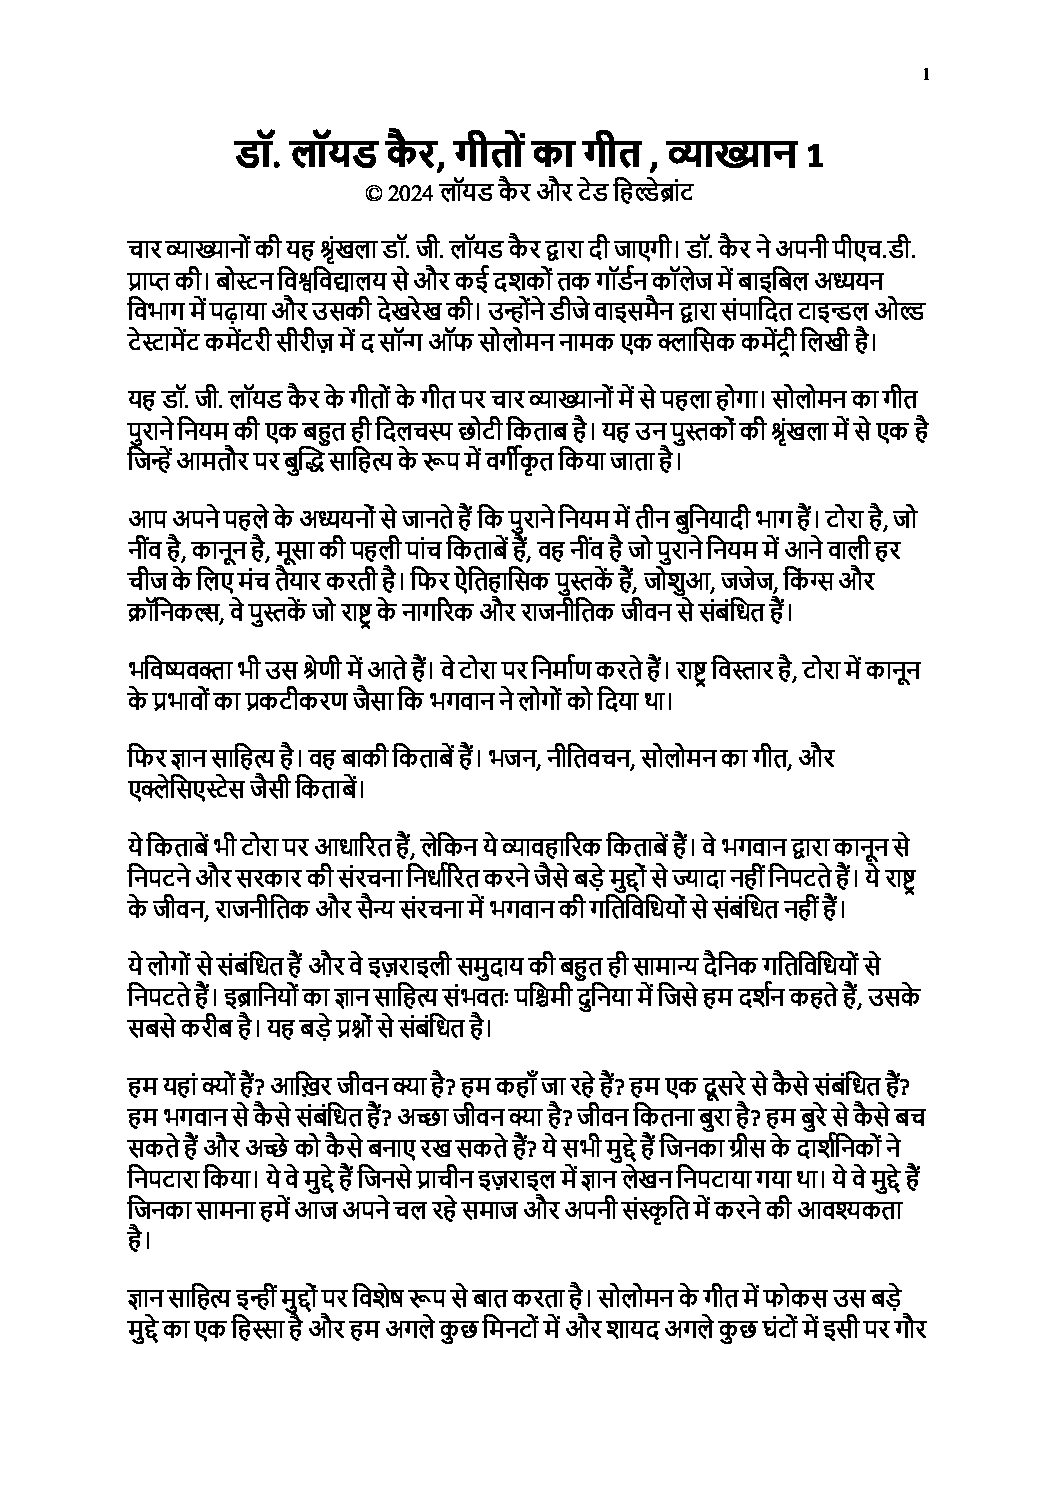 1
डॉ. लॉयड कैर, गीतों का गीत , व्याख्यान 1
© 2024 लॉयड कैर और टेड हिल्डेब्रांट
चार व्याख्यानों की यह श्रृंखला डॉ. जी. लॉयड कैर द्वारा दी जाएगी। डॉ. कैर ने अपनी पीएच.डी.
प्राप्त की। बोस्टन विश्वविद्यालय से और कई दशकों तक गॉर्डन कॉलेज में बाइबिल अध्ययन
विभाग में पढ़ाया और उसकी देखरेख की। उन्होंने डीजे वाइसमैन द्वारा संपादित टाइन्डल ओल्ड
टेस्टामेंट कमेंटरी सीरीज़ में द सॉन्ग ऑफ सोलोमन नामक एक क्लासिक कमेंट्री लिखी है।
यह डॉ. जी. लॉयड कैर के गीतों के गीत पर चार व्याख्यानों में से पहला होगा। सोलोमन का गीत
पुराने नियम की एक बहुत ही दिलचस्प छोटी किताब है। यह उन पुस्तकों की श्रृंखला में से एक है
जिन्हें आमतौर पर बुद्धि साहित्य के रूप में वर्गीकृत किया जाता है।
आप अपने पहले के अध्ययनों से जानते हैं कि पुराने नियम में तीन बुनियादी भाग हैं। टोरा है, जो
नींव है, कानून है, मूसा की पहली पांच किताबें हैं, वह नींव है जो पुराने नियम में आने वाली हर
चीज के लिए मंच तैयार करती है। फिर ऐतिहासिक पुस्तकें हैं, जोशुआ, जजेज, किंग्स और
क्रॉनिकल्स, वे पुस्तकें जो राष्ट्र के नागरिक और राजनीतिक जीवन से संबंधित हैं।
भविष्यवक्ता भी उस श्रेणी में आते हैं। वे टोरा पर निर्माण करते हैं। राष्ट्र विस्तार है, टोरा में कानून
के प्रभावों का प्रकटीकरण जैसा कि भगवान ने लोगों को दिया था।
फिर ज्ञान साहित्य है। वह बाकी किताबें हैं। भजन, नीतिवचन, सोलोमन का गीत, और
एक्लेसिएस्टेस जैसी किताबें।
ये किताबें भी टोरा पर आधारित हैं, लेकिन ये व्यावहारिक किताबें हैं। वे भगवान द्वारा कानून से
निपटने और सरकार की संरचना निर्धारित करने जैसे बड़े मुद्दों से ज्यादा नहीं निपटते हैं। ये राष्ट्र
के जीवन, राजनीतिक और सैन्य संरचना में भगवान की गतिविधियों से संबंधित नहीं हैं।
ये लोगों से संबंधित हैं और वे इज़राइली समुदाय की बहुत ही सामान्य दैनिक गतिविधियों से
निपटते हैं। इब्रानियों का ज्ञान साहित्य संभवतः पश्चिमी दुनिया में जिसे हम दर्शन कहते हैं, उसके
सबसे करीब है। यह बड़े प्रश्नों से संबंधित है।
हम यहां क्यों हैं? आख़िर जीवन क्या है? हम कहाँ जा रहे हैं? हम एक दूसरे से कैसे संबंधित हैं?
हम भगवान से कैसे संबंधित हैं? अच्छा जीवन क्या है? जीवन कितना बुरा है? हम बुरे से कैसे बच
सकते हैं और अच्छे को कैसे बनाए रख सकते हैं? ये सभी मुद्दे हैं जिनका ग्रीस के दार्शनिकों ने
निपटारा किया। ये वे मुद्दे हैं जिनसे प्राचीन इज़राइल में ज्ञान लेखन निपटाया गया था। ये वे मुद्दे हैं
जिनका सामना हमें आज अपने चल रहे समाज और अपनी संस्कृति में करने की आवश्यकता
है।
ज्ञान साहित्य इन्हीं मुद्दों पर विशेष रूप से बात करता है। सोलोमन के गीत में फोकस उस बड़े
मुद्दे का एक हिस्सा है और हम अगले कुछ मिनटों में और शायद अगले कुछ घंटों में इसी पर गौर